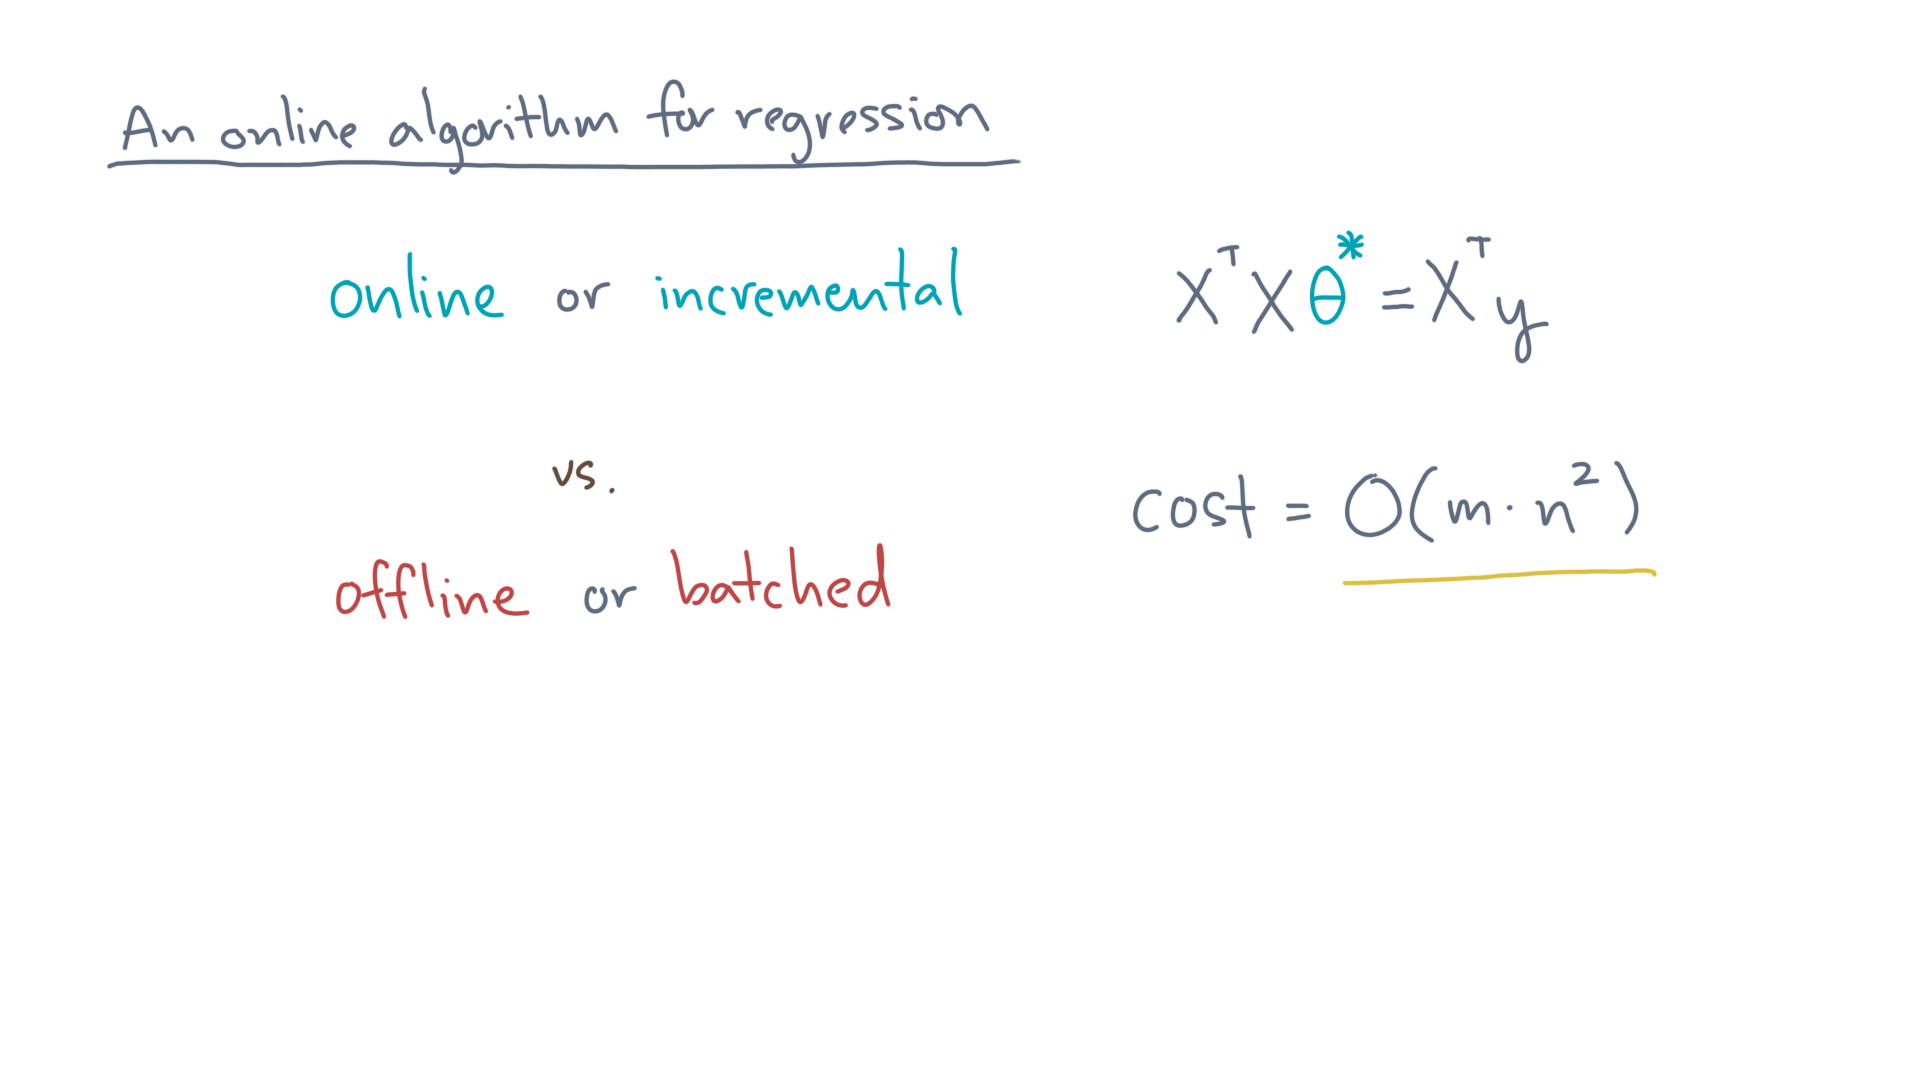 An online algorithm for regression
online or incremental
vs.
offline or batched
XᵀXθ* = Xᵀy
cost = O(m·n²)